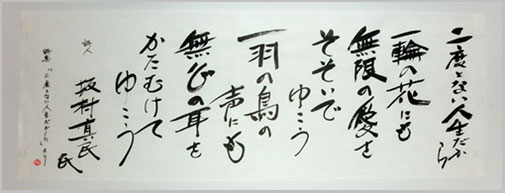 二度とない人生だから
一輪の花にも
無限の愛を
そそいで
ゆこう
一羽の鳥の
声にも
無心の耳を
かたむけて
ゆこう
詩人
坂村真民氏
詩集「二度とない人生だから」より